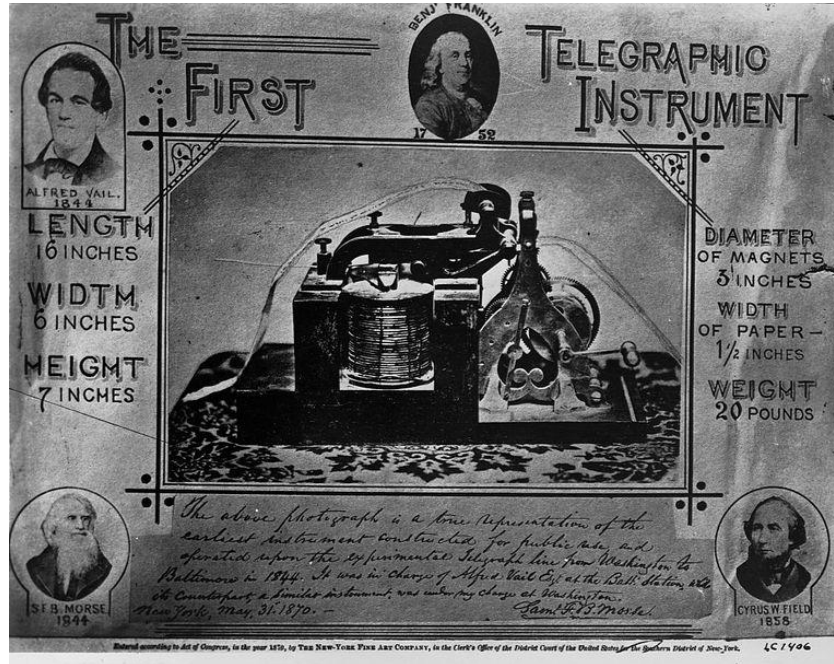 THE
FIRST
BENJ. FRANKLIN
1752
TELEGRAPHIC
INSTRUMENT
ALFRED VAIL.
1844
LENGTH
16 INCHES
WIDTH
6 INCHES
HEIGHT
7 INCHES
DIAMETER
OF MAGNETS
3 INCHES
WIDTH
OF PAPER –
1 1/2 INCHES
WEIGHT
20 POUNDS
The above photograph is a true representation of the
earliest instrument constructed for public use and
operated upon the experimental Telegraph line from Washington to
Baltimore in 1844. It was in charge of Alfred Vail Esq at the Balt. Station, and
its Counterpart, a similar instrument, was under my charge at Washington.
New York, May, 31. 1870. –
Saml. F. B. Morse.
S.F.B. MORSE
1844
CYRUS W. FIELD
1858
Entered according to Act of Congress, in the year 1870, by THE NEW-YORK FINE ART COMPANY, in the Clerk's Office of the District Court of the United States for the Southern District of New-York.
LC 1406